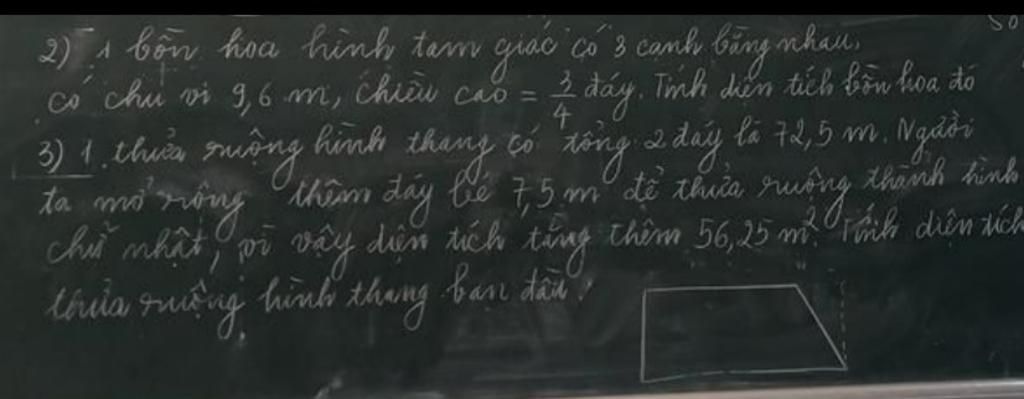 2) 1 bồn hoa hình tam giác có 3 cạnh bằng nhau,
có chu vi 9,6 m, chiều cao = 3/4 đáy. Tính diện tích bồn hoa đó
3) 1 thửa ruộng hình thang có tổng 2 đáy là 72,5 m. Người
ta mở rộng thêm đáy bé 7,5 m để thửa ruộng thành hình
chữ nhật, vì vậy diện tích tăng thêm 56,25 m². Tính diện tích
thửa ruộng hình thang ban đầu.